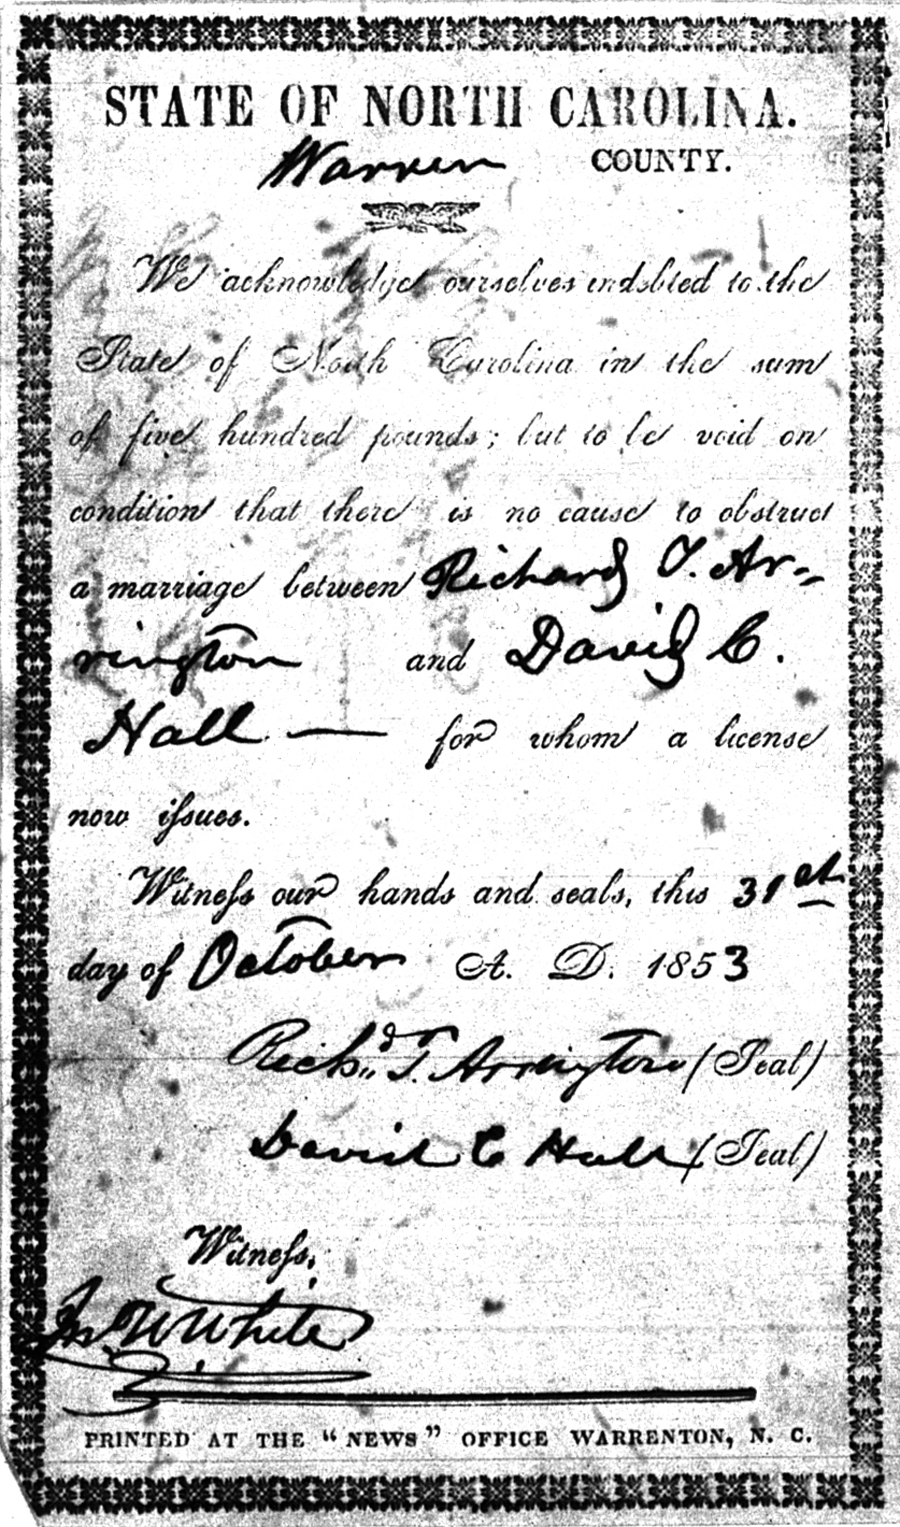 STATE OF NORTH CAROLINA.
Warren COUNTY.
We acknowledge ourselves indebted to the
State of North Carolina in the sum
of five hundred pounds; but to be void on
condition that there is no cause to obstruct
a marriage between Richard T. Ar-
rington and David C.
Hall — for whom a license
now issues.
Witness our hands and seals, this 31st
day of October A. D. 1853
Richd. T. Arrington (Seal)
David C Hall (Seal)
Witness,
Jn W White
PRINTED AT THE "NEWS" OFFICE WARRENTON, N. C.